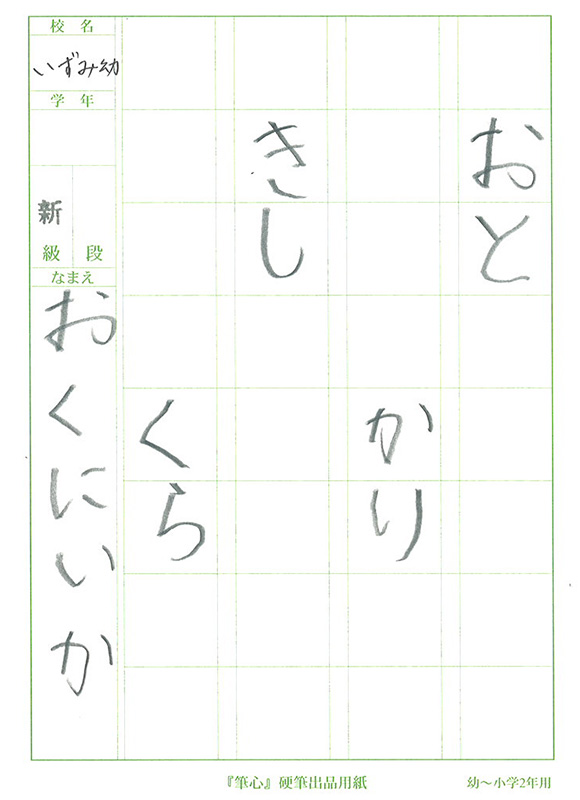 おと
かり
きし
くら
校名
いずみ幼
学年
新
級段
なまえ
おくにいか
『筆心』硬筆出品用紙
幼～小学2年用